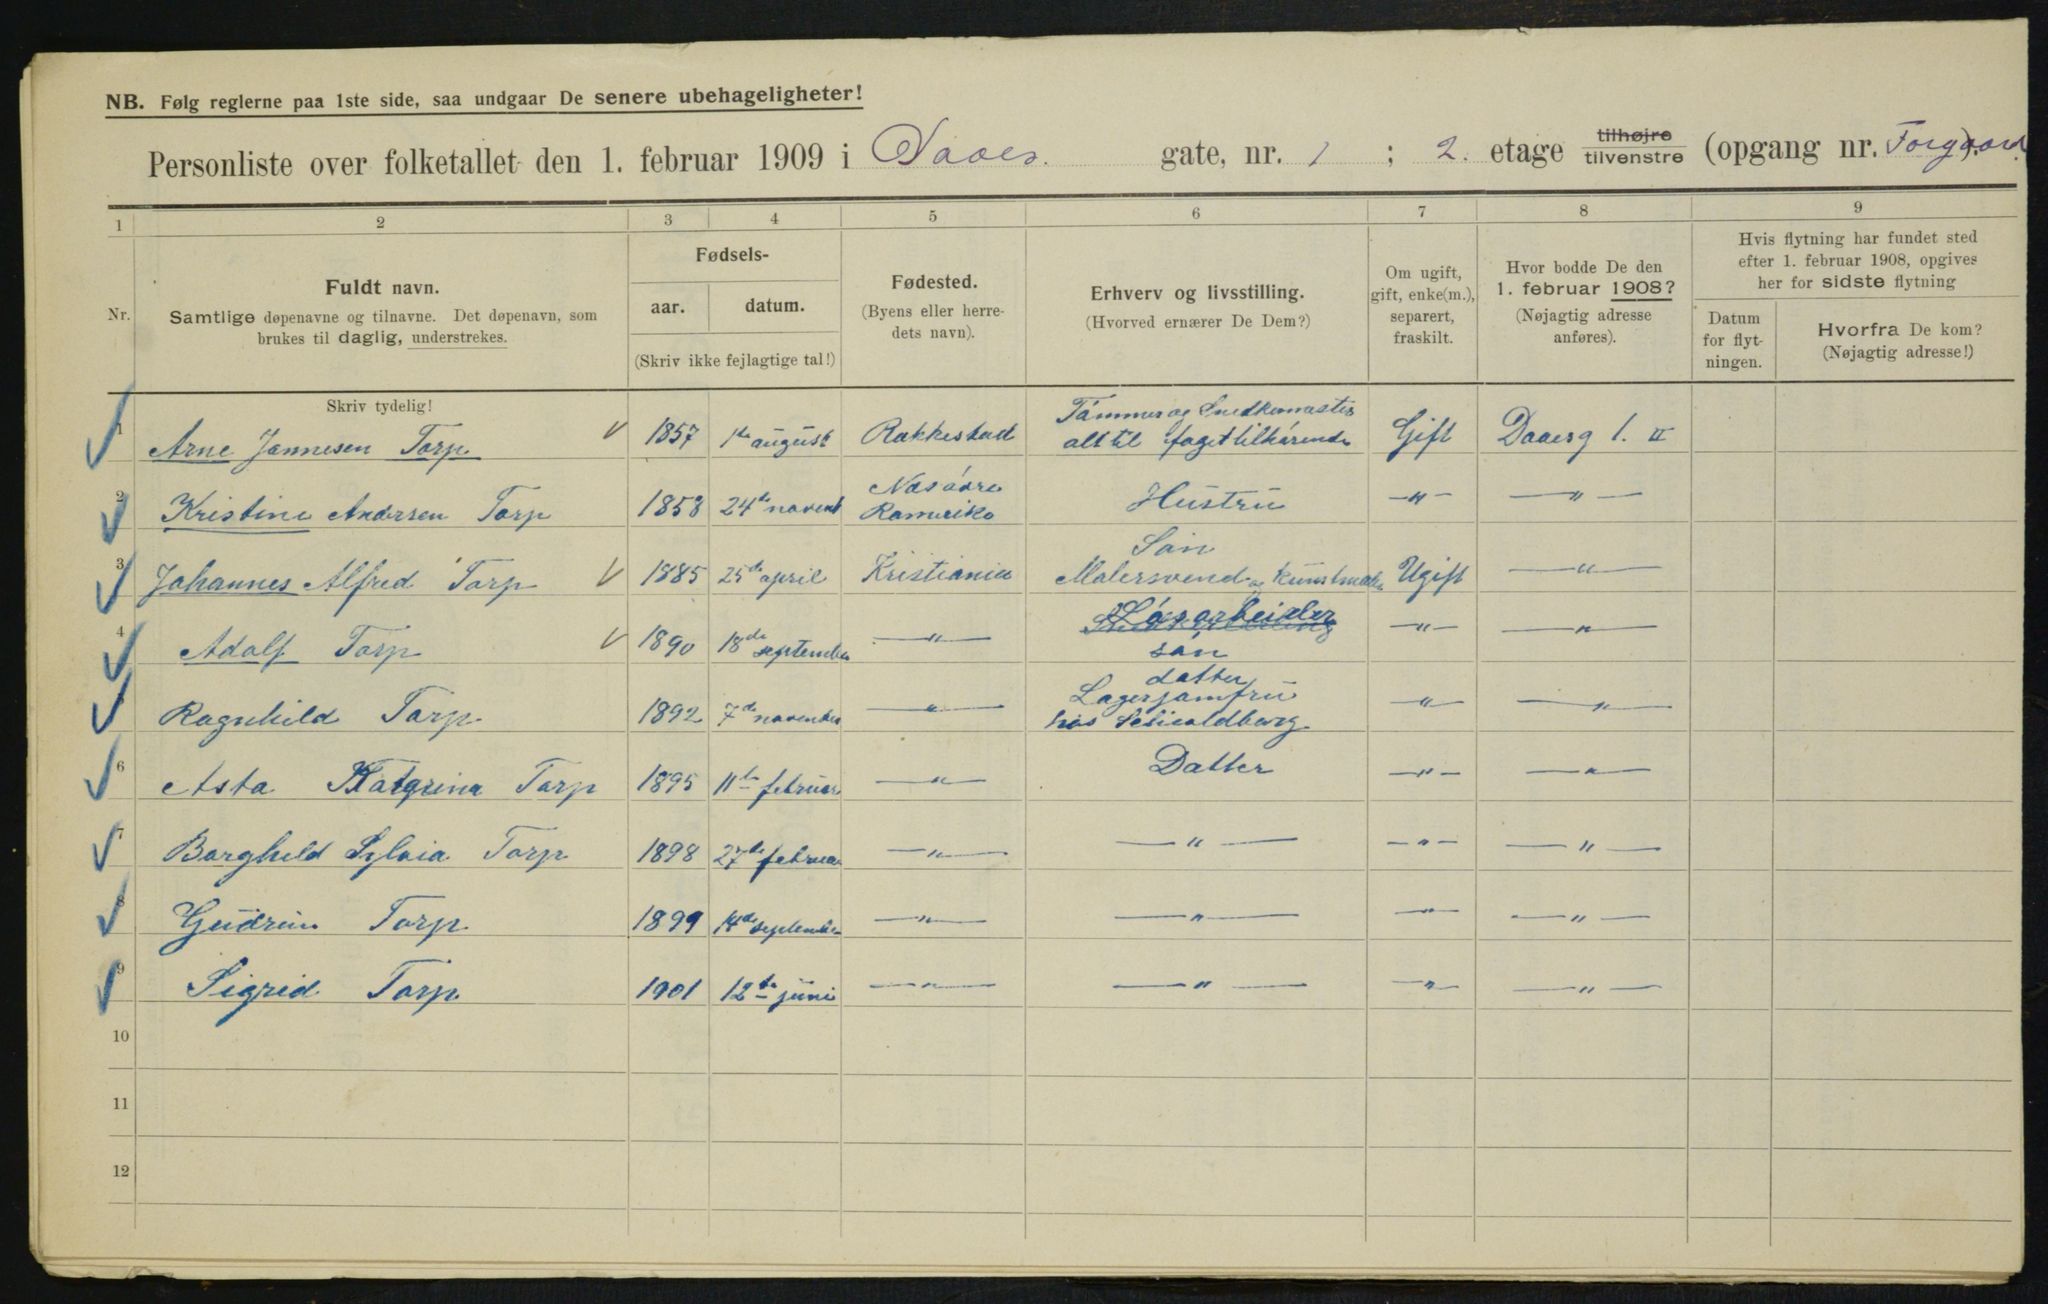 NB. Følg reglerne paa 1ste side, saa undgaar De senere ubehageligheter!
Personliste over folketallet den 1. februar 1909 i Daaes. gate, nr. 1 ; 2. etage tilhøjre tilvenstre (opgang nr. Forgaard).
1 2 3 4 5 6 7 8 9
Nr.
Fuldt navn.
Samtlige døpenavne og tilnavne. Det døpenavn, som
brukes til daglig, understrekes.
Fødsels-
aar. datum.
(Skriv ikke fejlagtige tal!)
Fødested.
(Byens eller herre-
dets navn).
Erhverv og livsstilling.
(Hvorved ernærer De Dem?)
Om ugift,
gift, enke(m.),
separert,
fraskilt.
Hvor bodde De den
1. februar 1908?
(Nøjagtig adresse
anføres).
Hvis flytning har fundet sted
efter 1. februar 1908, opgives
her for sidste flytning
Datum
for flyt-
ningen.
Hvorfra De kom?
(Nøjagtig adresse!)
Skriv tydelig!
1 Arne Jannesen Torp 1857 1ste august Rakkestad Tømmer og Snedkermester
alt til faget tilhørende Gift Daaesg 1. II
2 Kristine Andersen Torp 1858 24de novemb Nes øvre
Romerike Hustru –"– –"–
3 Johannes Alfred Torp 1885 25de april Kristiania Søn
Malersvend og Kunstmaler Ugift –"–
4 Adolf Torp 1890 18de september –"– Løsarbeider
søn –"– –"–
5 Ragnhild Torp 1892 7de november –"– datter
Lagerjomfru
hos –"– –"–
6 Asta Katrina Torp 1895 11te februar –"– Datter –"– –"–
7 Borghild Sylvia Torp 1898 27de februar –"– –"– –"– –"–
8 Gudrun Torp 1899 14de september –"– –"– –"– –"–
9 Sigrid Torp 1901 12te juni –"– –"– –"– –"–
10
11
12